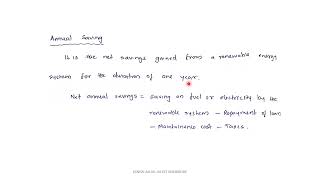 Annual Saving
It is the net savings gained from a renewable energy
system for the duration of one year.
Net annual savings = Saving on fuel or electricity by the
renewable systems - Repayment of loan
- Maintainence cost - Taxes.